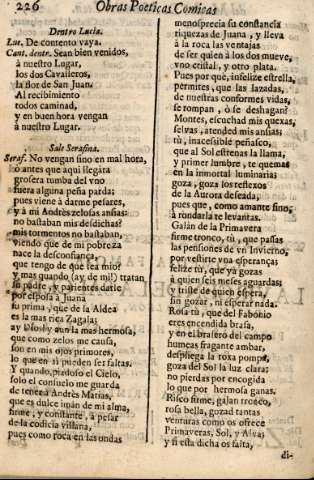 226 Obras Poeticas Comicas
Dentro Lucia.
Luc. De contento vaya.
Cant. dentr. Sean bien venidos,
à nuestro Lugar,
los dos Cavalleros,
la flor de San Juan.
Al recibimiento
todos caminad,
y en buen hora vengan
à nuestro Lugar.
Sale Serafina.
Seraf. No vengan sino en mal hora,
ò antes que aqui llegàra
grosera tumba del vno
fuera alguna peña parda;
pues viene à darme pesares,
y à mi Andrès zelosas ansias:
no bastaban mis desdichas?
mis tormentos no bastaban,
viendo que de mi pobreza
nace la desconfiança,
que tengo de que sea mio?
y mas quando (ay, de mi!) tratan
su padre, y parientes darle
por esposa à Juana
su prima, que de la Aldea
es la mas rica Zagala;
y aun la mas hermosa,
que como zelos me causa,
son en mis ojos primores,
lo que en sì pueden ser faltas.
Y quando piadoso el Cielo,
solo el consuelo me guarda
de tener à Andrès Matias,
que es dulce imàn de mi alma,
firme, y constante, à pesar
de la codicia villana,
pues como roca en las ondas
menosprecia su constancia
riquezas de Juana, y lleva
à la roca las ventajas
de ser quien à los dos mueve,
vno cristal, y otro plata.
Pues por què, infelize estrella,
permites, que las lazadas,
de nuestras conformes vidas,
se rompan, ò se deshagan?
Montes, escuchad mis quexas,
selvas, atended mis ansias:
tù, inaccesible peñasco,
que al Sol estrenas la llama,
y primer lumbre, te quemas
en la inmortal luminarias
goza, goza los reflexos
de la Aurora deseada,
pues que, como amante fino,
à rondarla te levantas.
Galàn de la Primavera
firme tronco, tù, que pasas
las pensiones de vn Invierno,
por vestirte vna esperanças
felize tù, que yà gozas
à quien seis meses aguardas;
y triste de quien espera,
sin gozar, ni esperar nada.
Rosa tù, que del Fabonio
eres encendida brasa,
y en el brasero del campo
humeas fragante ambar,
despliega la roxa pompa,
goza del Sol la luz clara;
no pierdas por encogida
lo que por hermosa ganas.
Risco firme, galan tronco,
rosa bella, gozad tantas
venturas como os ofrece
Primaveras, Sol, y Alva;
y si esta dicha os falta,
di-